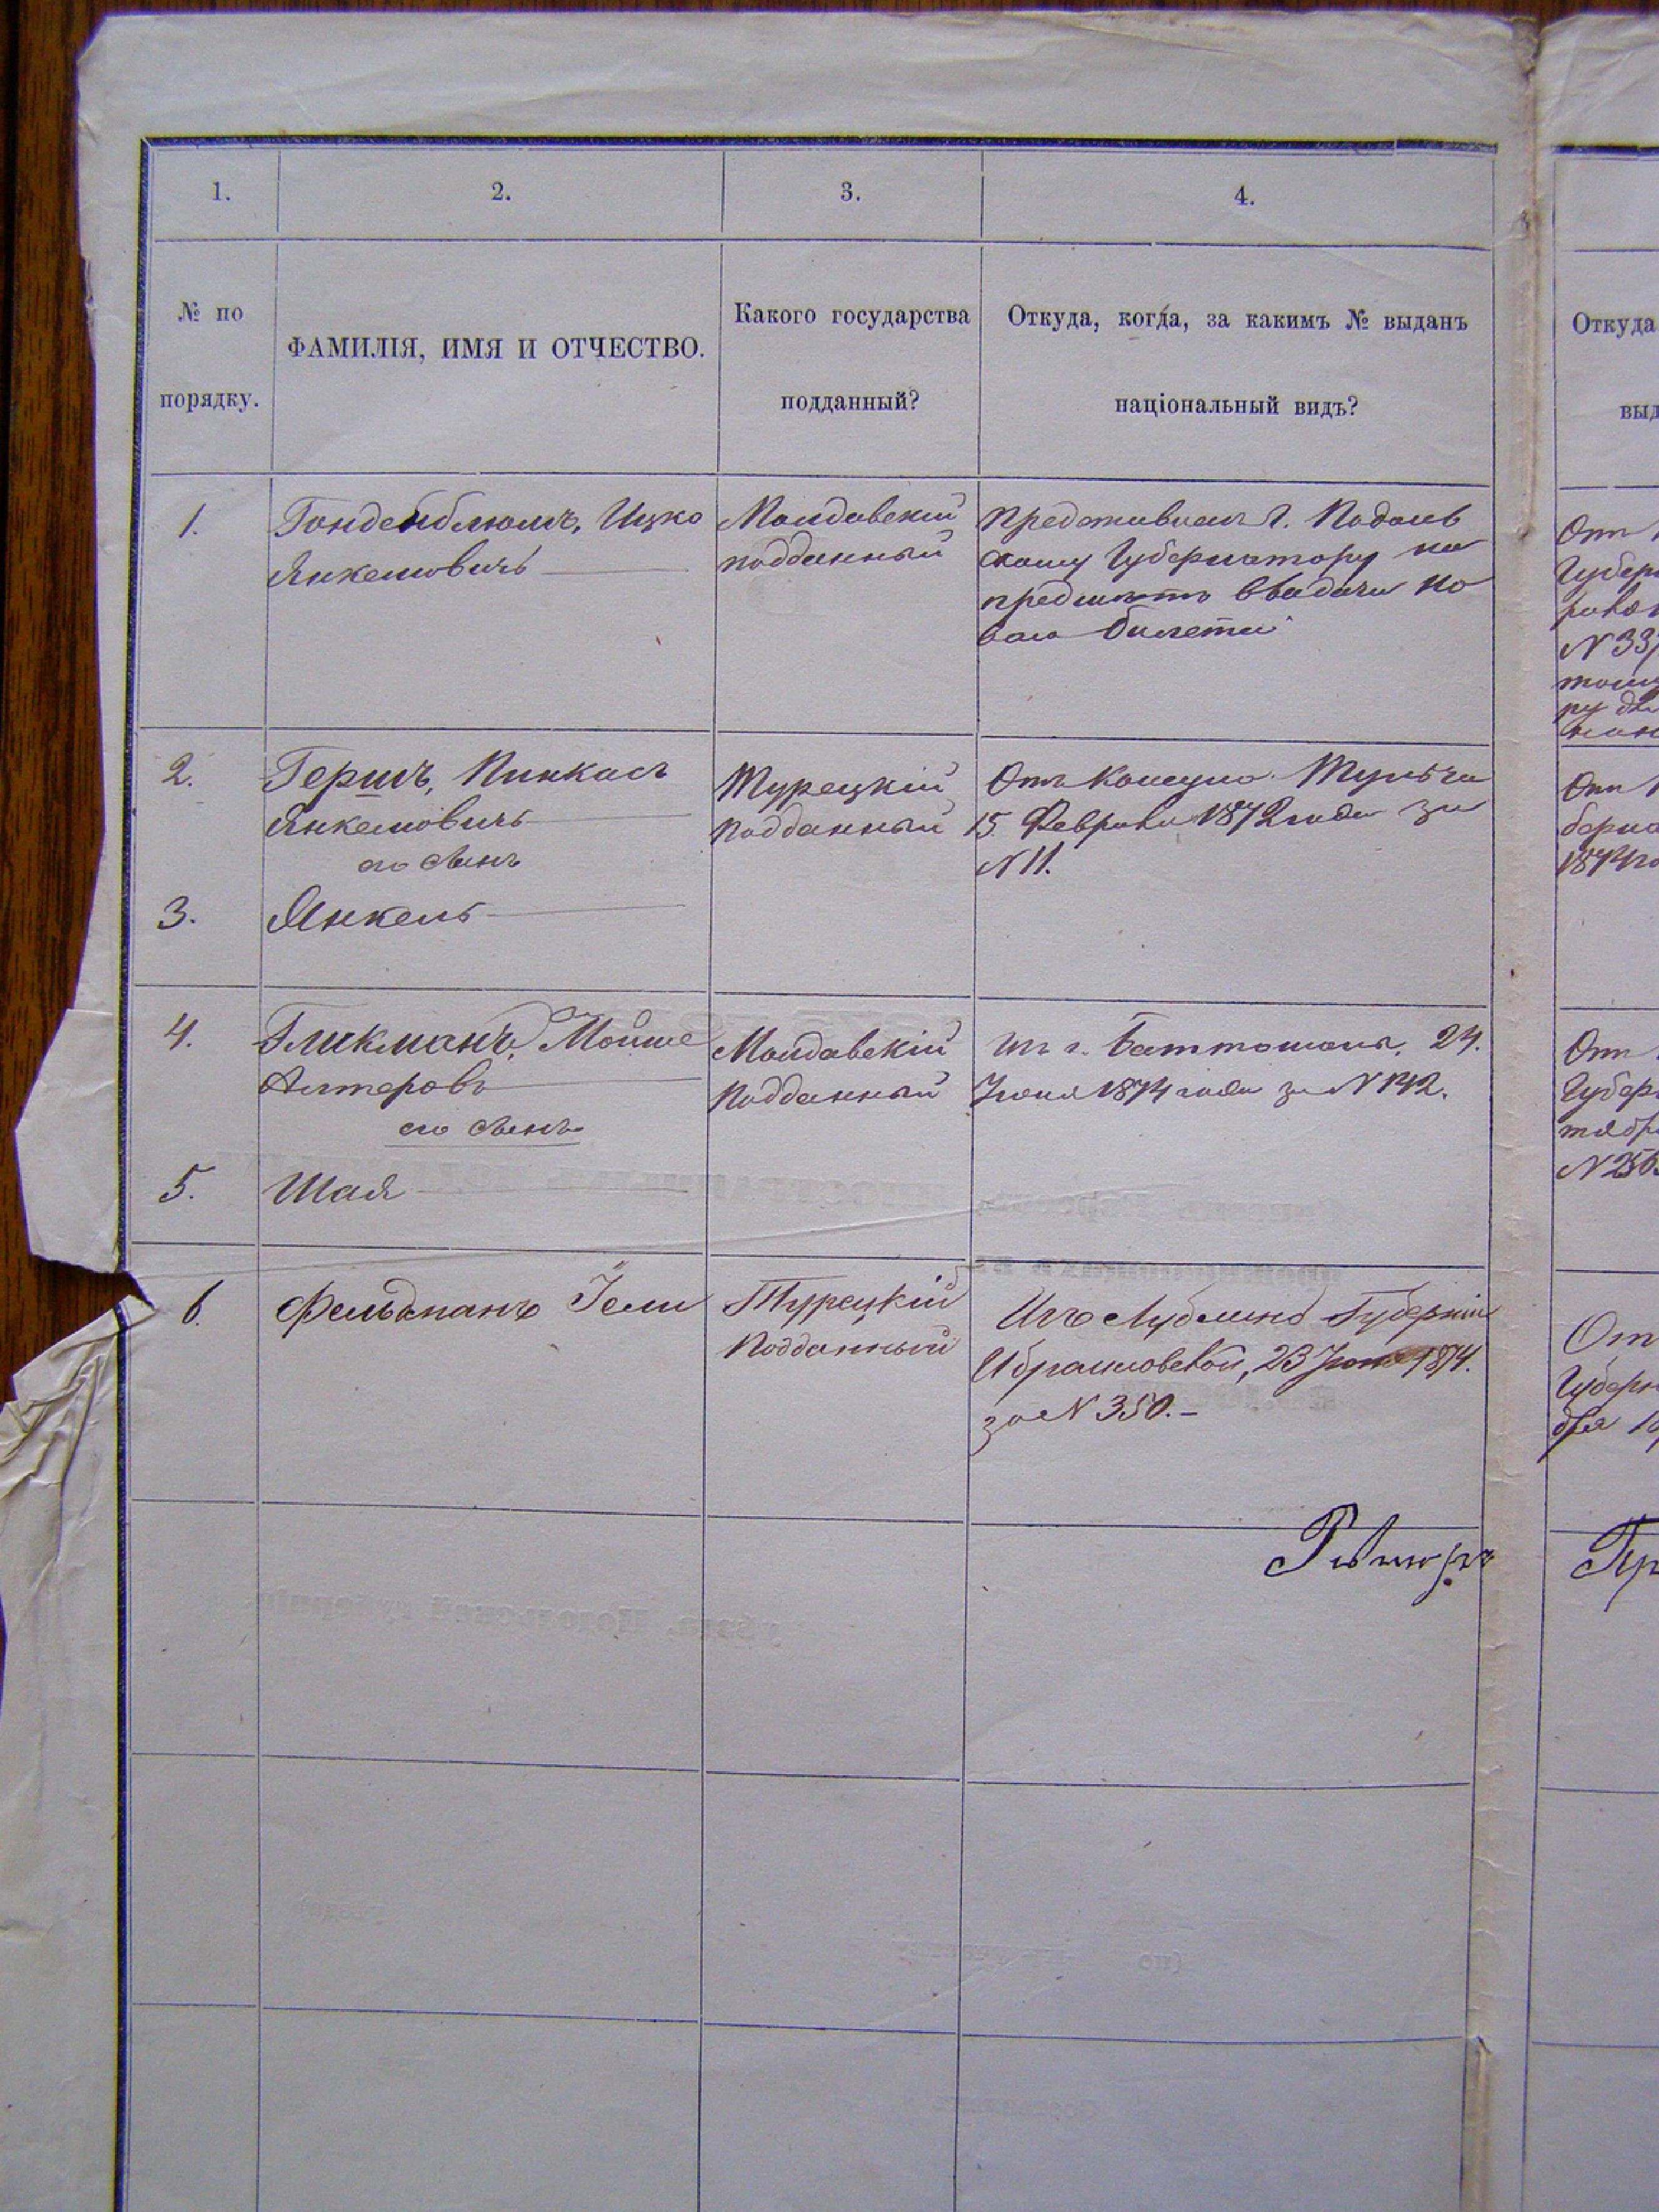 1. 2. 3. 4.
№ по
порядку.
ФАМИЛІЯ, ИМЯ И ОТЧЕСТВО.
Какого государства
подданный?
Откуда, когда, за какимъ № выданъ
національный видъ?
Откуда
выд
1.
Гонденблюмъ, Ицко
Янкелювичъ
Молдавскій
подданный
Представленъ Г. Подоль
скому Губернатору на
предметъ выдачи но
ваго билета
2.
Гершъ, Пинкасъ
Янкелювичъ
его сынъ
3. Янкель
Турецкій
подданный
Отъ Консула Тульчи
15 Февраля 1872 года за
№ 11.
4.
Гликманъ, Мойше
Алтеровъ
его сынъ
5. Шая
Молдавскій
подданный
Изъ г. Баттошана, 24.
Іюня 1874 года за № 142.
6.
Фельдманъ Іели
Турецкій
Подданный
Изъ Губерніи
Ибраиловской, 23 1874.
за № 350.–
От
Губер
№ 33
От
1874
От
Губер
тябр
№ 256
От
Губерн
бря